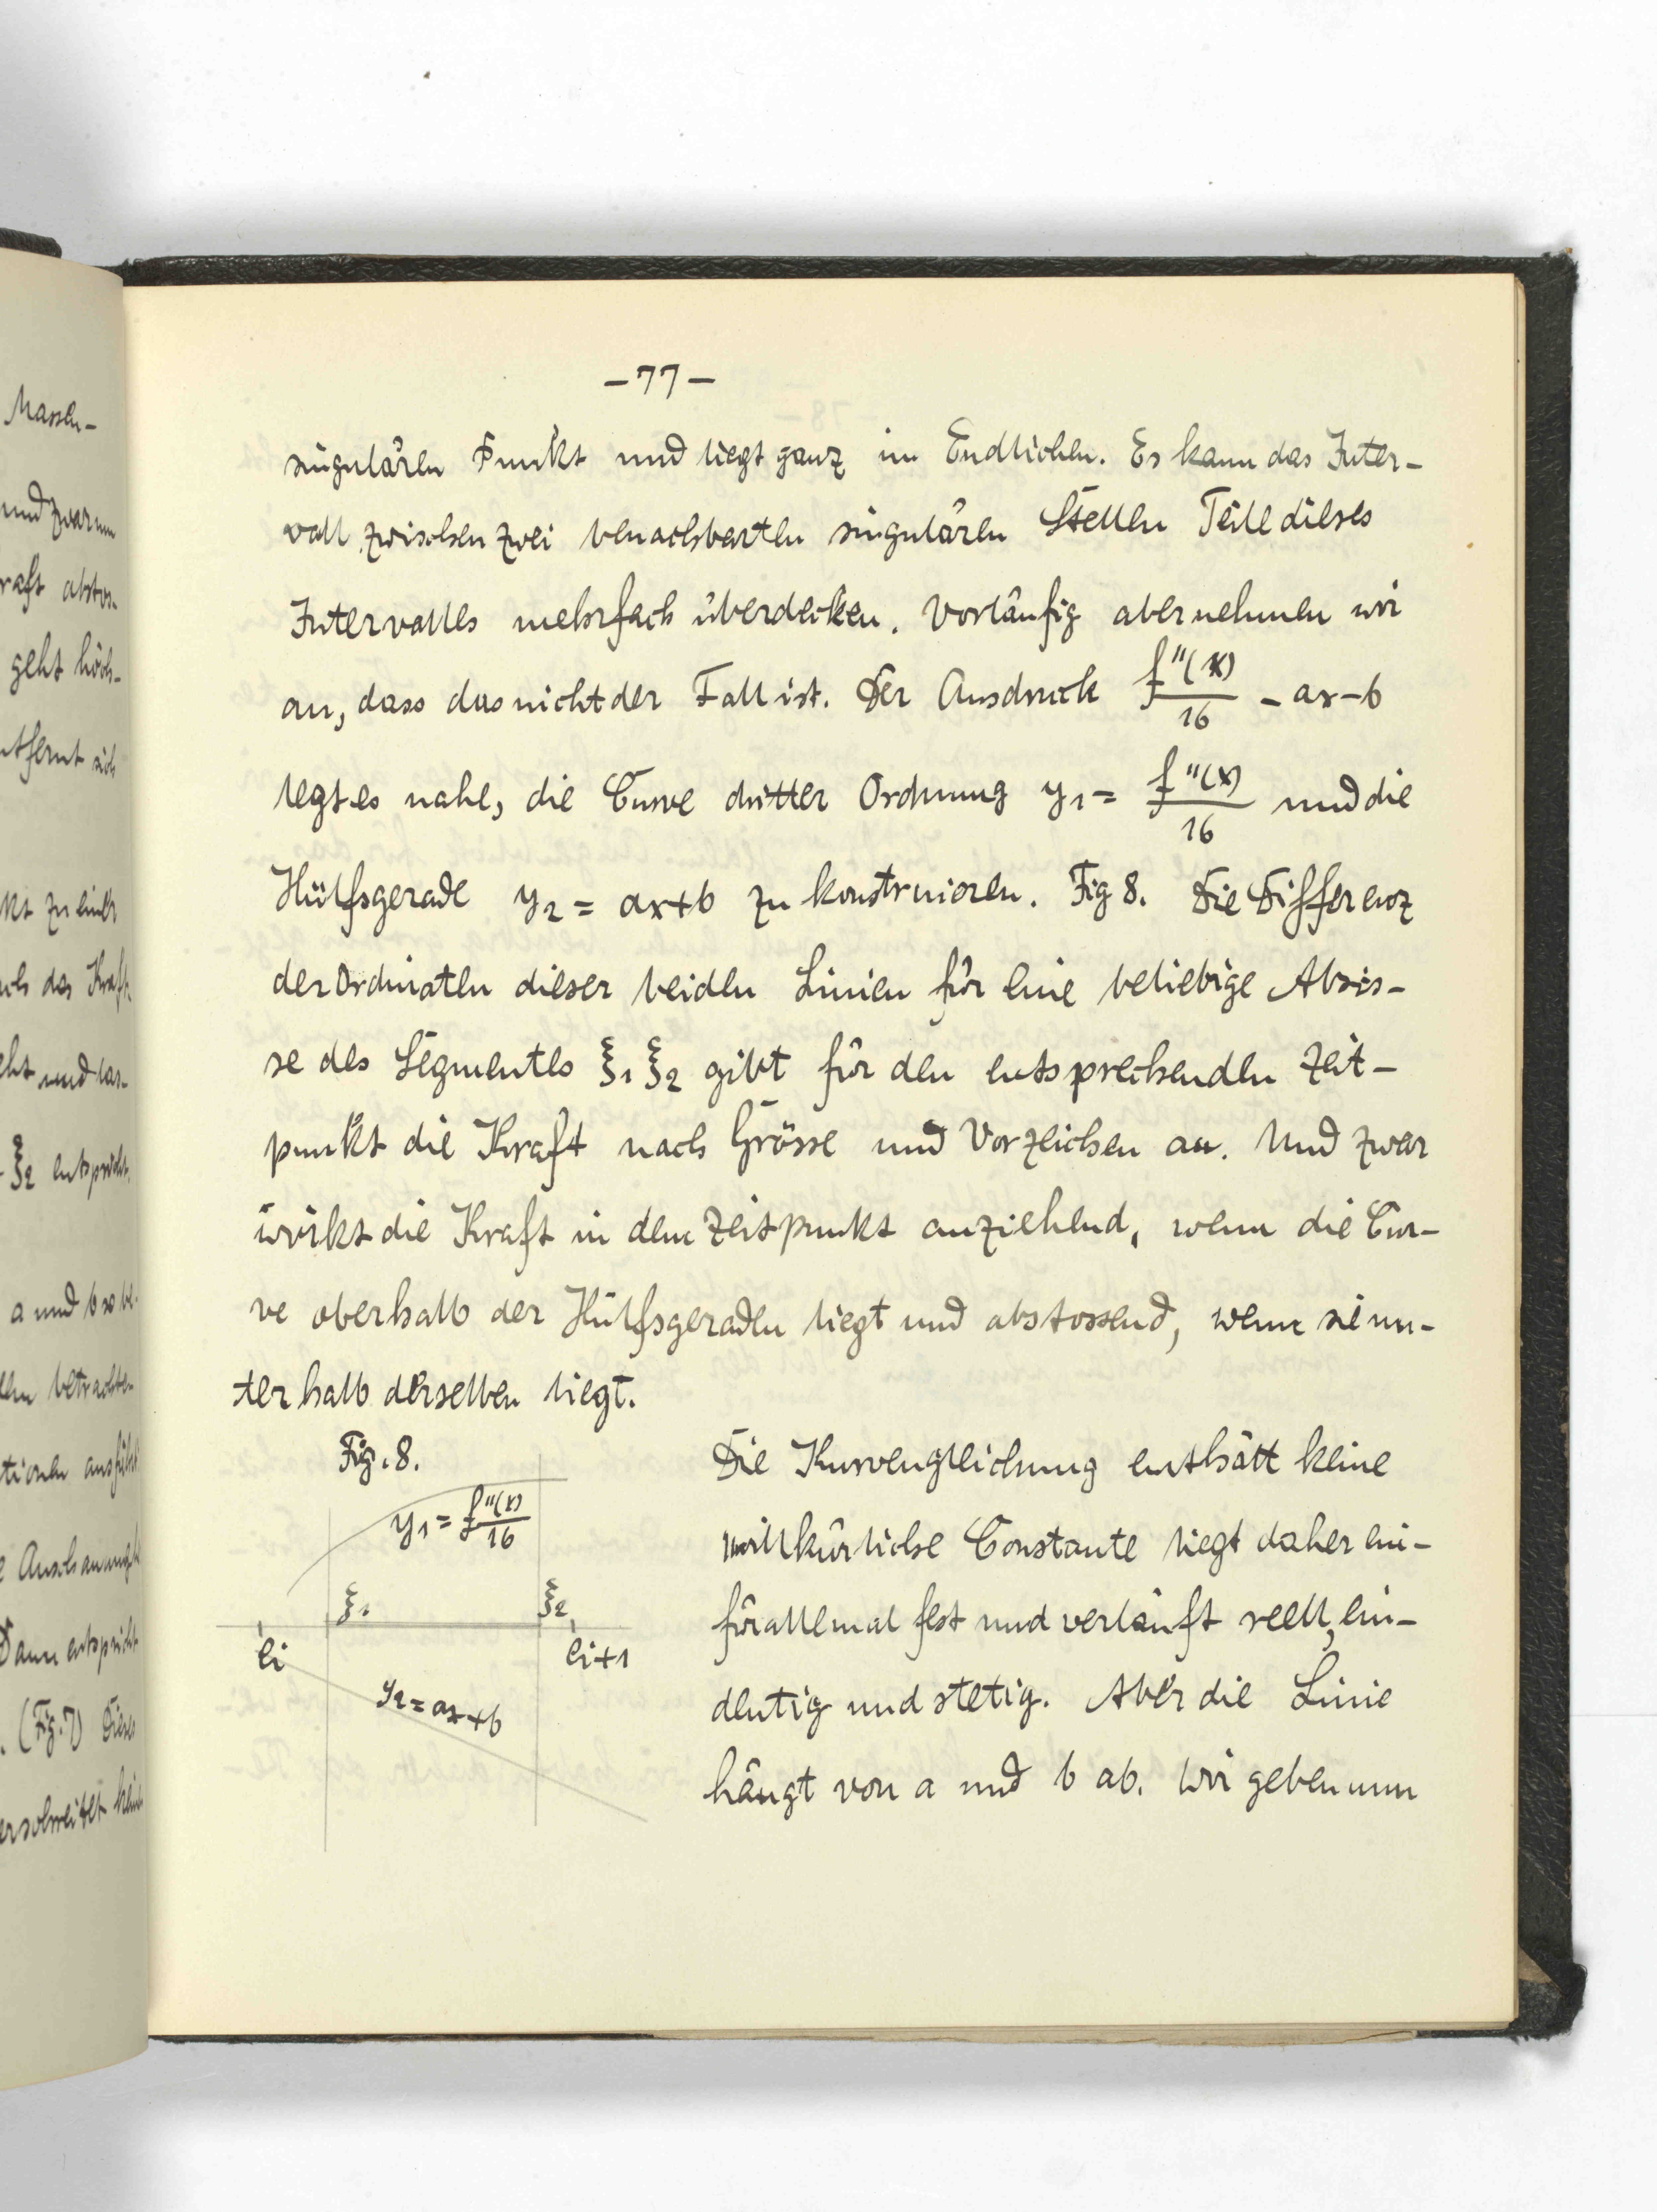 Massen-
und zwar um
raft abstos-
geht höch-
ntfernt sich
kt zu einer
das Kraft-
eht und las-
ξ2 entspricht.
a und b so be-
betrachte-
tionen ausführt
Anschauung
Dann entspricht
(Fig. 7) Dieses
erschreitet kein
-77-
singulären Punkt und liegt ganz im Endlichen. Es kann das Inter-
vall zwischen zwei benachbarten singulären Stellen Teile dieses
Intervalles mehrfach überdecken. Vorläufig aber nehmen wir
an, dass das nicht der Fall ist. Der Ausdruck f''(x)/16 - ax - b
legt es nahe, die Curve dritter Ordnung y1 = f''(x)/16 und die
Hülfsgerade y2 = ax+b zu konstruieren. Fig 8. Die Differenz
der Ordinaten dieser beiden Linien für eine beliebige Absis-
se des Segmentes ξ1 ξ2 gibt für den entsprechenden Zeit-
punkt die Kraft nach Grösse und Vorzeichen an. Und zwar
wirkt die Kraft in dem Zeitpunkt anziehend, wenn die Cur-
ve oberhalb der Hülfsgeraden liegt und abstossend, wenn sie un-
terhalb derselben liegt.
Fig. 8.
y1 = f''(x)/16
ξ1 ξ2
ei ei+1
y2 = ax+b
Die Kurvengleichung enthält keine
willkürliche Constante liegt daher ein-
für allemal fest und verläuft reell, ein-
deutig und stetig. Aber die Linie
hängt von a und b ab. Wir geben nun